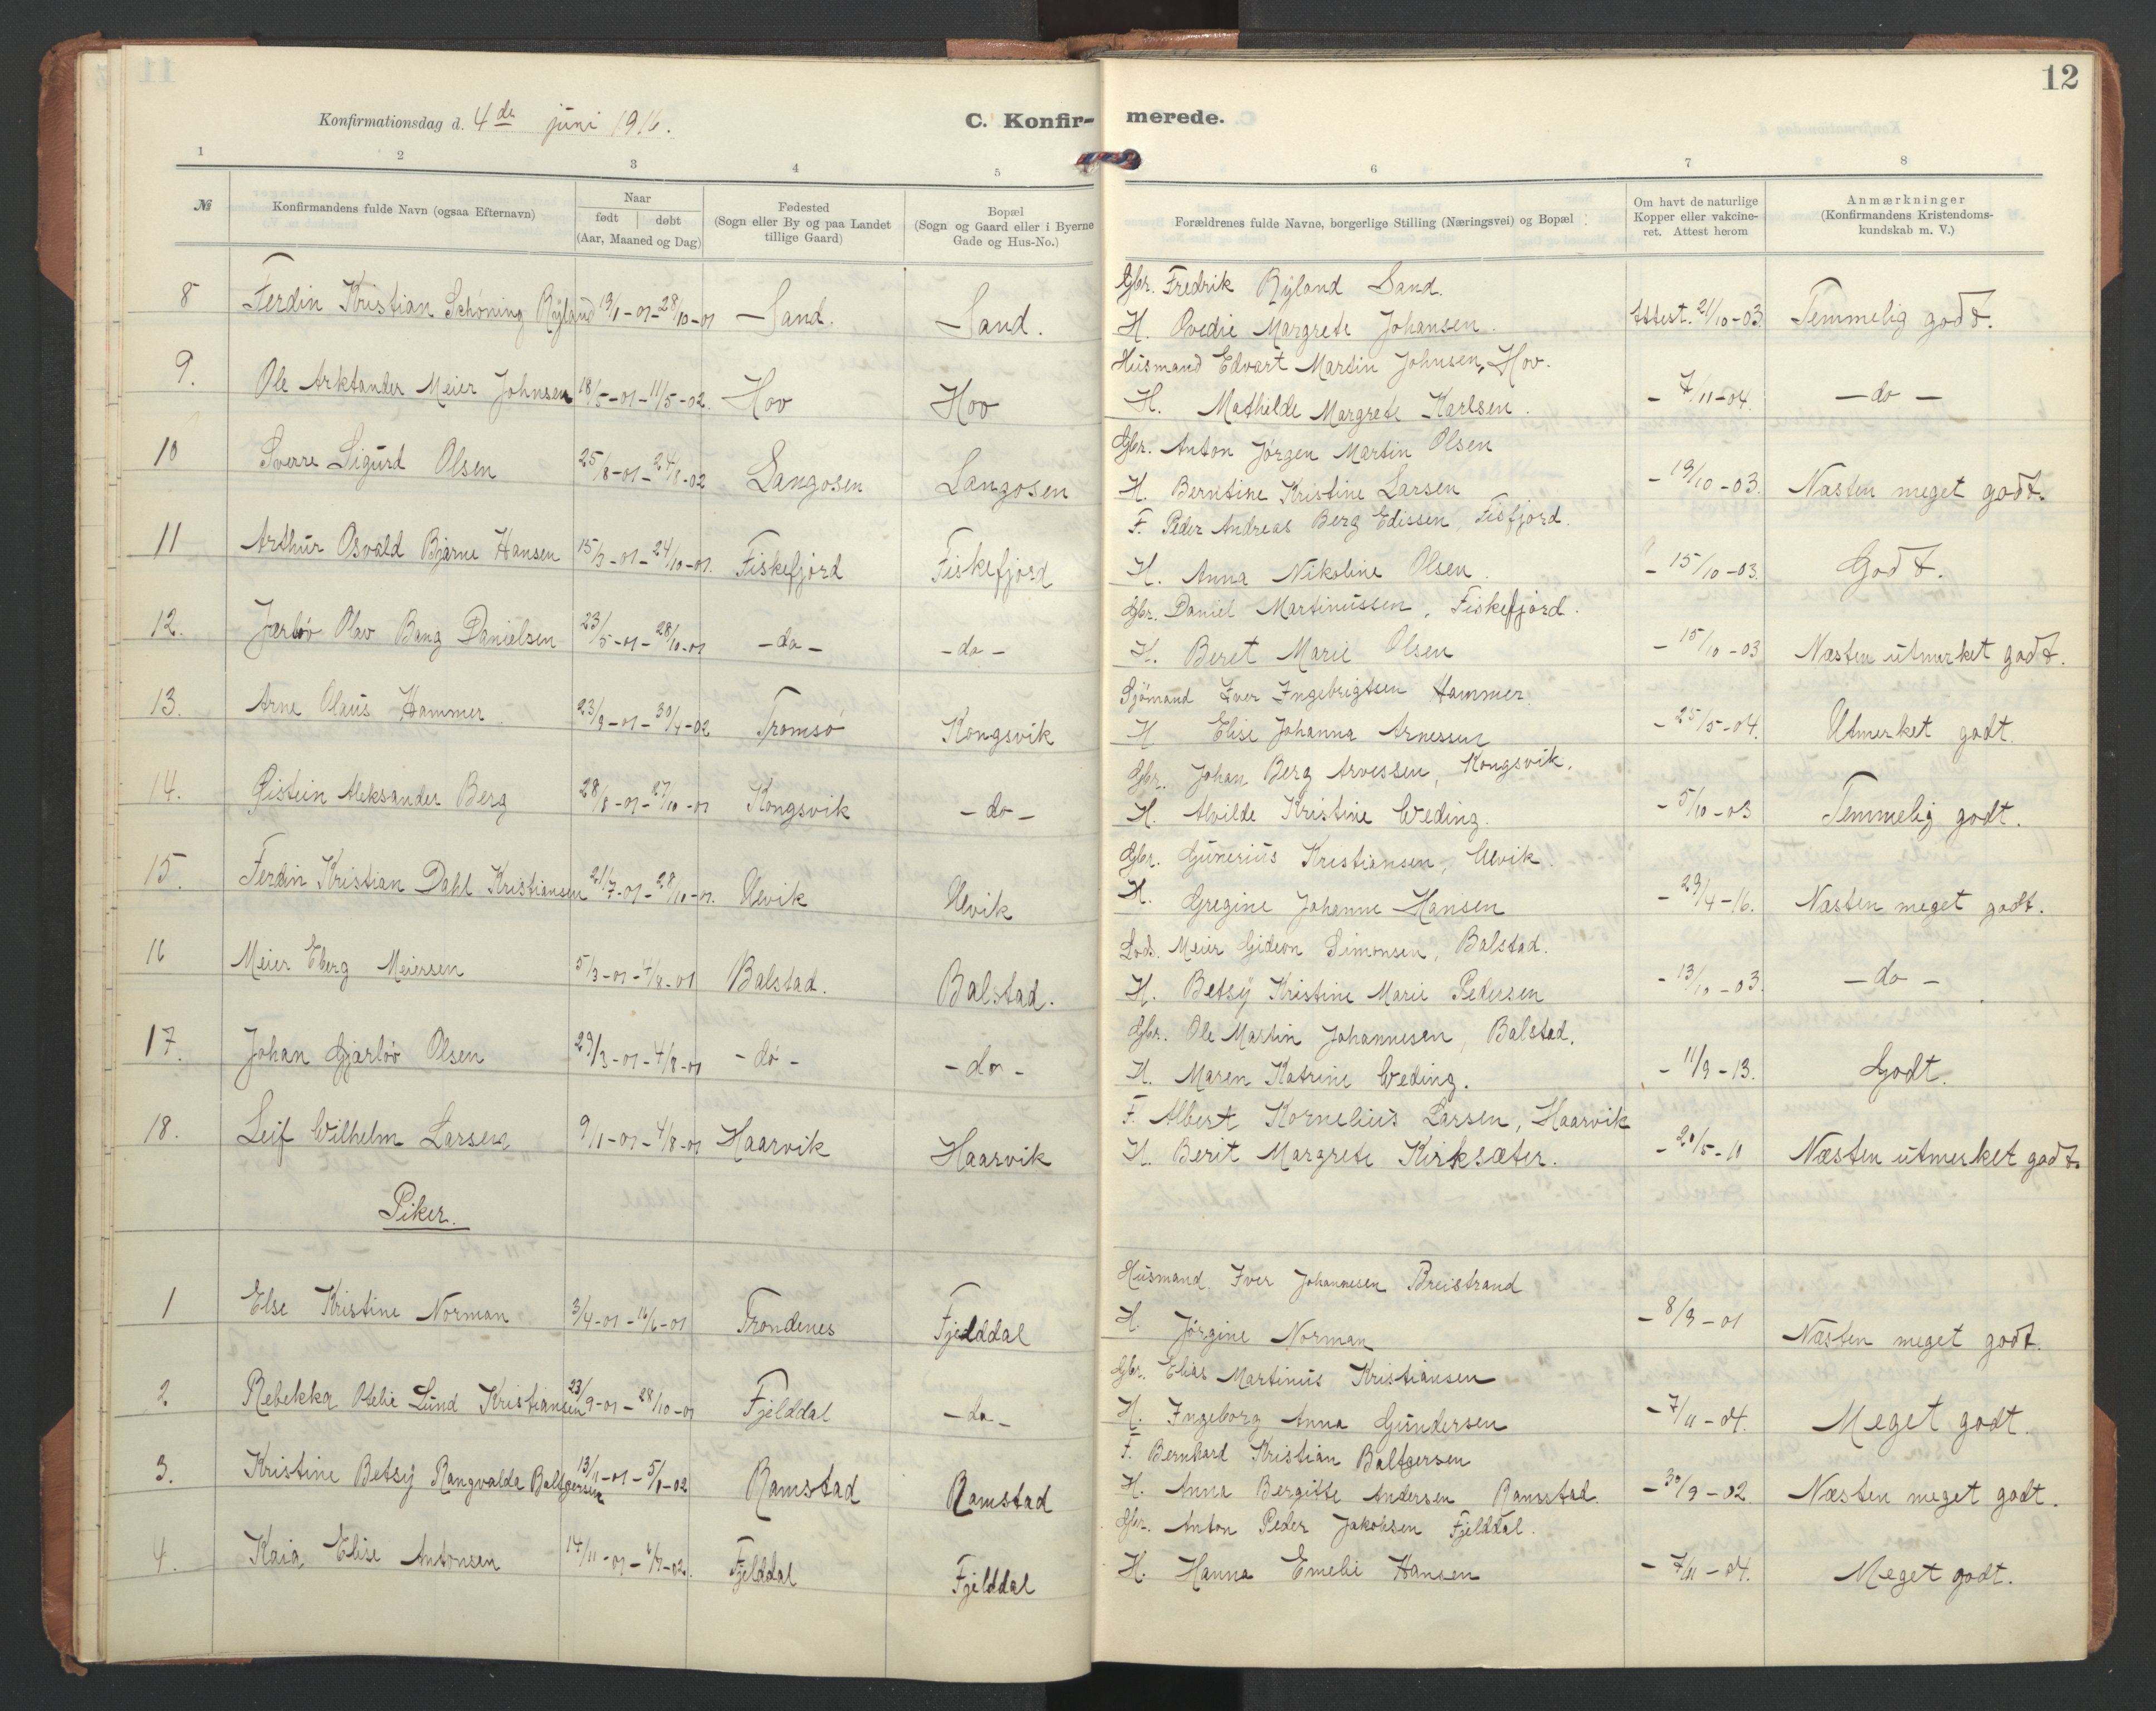 12
Konfirmationsdag d. 4de juni 1916.
C. Konfir- merede.
1 2 3 4 5 6 7 8
№
Konfirmandens fulde Navn (ogsaa Efternavn)
Naar
født døbt
(Aar, Maaned og Dag)
Fødested
(Sogn eller By og paa Landet
tillige Gaard)
Bopæl
(Sogn og Gaard eller i Byerne
Gade og Hus-No.)
Forældrenes fulde Navne, borgerlige Stilling (Næringsvei) og Bopæl
Om havt de naturlige
Kopper eller vakcine-
ret. Attest herom
Anmærkninger
(Konfirmandens Kristendoms-
kundskab m. V.)
Gbr. Fredrik Ryland Sand.
8 Ferdin Kristian Schöning Ryland 19/1-01-28/10-01 Sand. Sand. H. Margrete Johansen. Attest. 21/10-03. Temmelig godt.
Husmand Edvart Martin Johnsen, Hov.
9. Ole Arktander Meier Johnsen 18/5-01-11/5-02. Hov Hov H. Mathilde Margrete Karlsen. - 7/11-04. - do -
Gbr. Anton Jörgen Martin Olsen
10 Sverre Sigurd Olsen 25/8-01-24/8-02 Langosen Langosen H. Berntine Kristine Larsen - 19/10-03. Næsten meget godt.
F. Peder Andreas Berg Edissen, Fisfjord.
11 Arthur Osvald Bjarne Hansen 15/3-01-24/10-01. Fiskefjord Fiskefjord H. Anna Nikoline Olsen. - 15/10-03. Godt.
Gbr. Daniel Martinussen, Fiskefjord.
12. Jarlöv Olav Bang Danielsen 23/5-01-28/10-01 - do - - do - H. Beret Marie Olsen - 15/10-03 Næsten utmerket godt.
Sjömand Iver Ingebrigtsen Hammer.
13. Arne Olaus Hammer 23/9-01-30/4-02 Tromsö Kongsvik H. Elise Johanna Arnessen - 25/5-04. Utmerket godt.
Gbr. Johan Berg Arvessen, Kongsvik.
14. Øistein Aleksander Berg 28/8-01-27/10-01 Kongsvik - do - H. Alvilde Kristine Weding. - 5/10-03 Temmelig godt.
Gbr. Gunerius Kristiansen, Ulvik.
15. Ferdin Kristian Dahl Kristiansen 21/7-01-28/10-01. Ulvik Ulvik H. Gregine Johanne Hansen - 29/4-16. Næsten meget godt.
Lods. Meier Gideon Simonsen, Balstad.
16 Meier Eberg Meiersen 5/3-01-4/8-01 Balstad. Balstad. H. Betsy Kristine Marie Pedersen - 13/10-03. - do -
Gbr. Ole Martin Johannesen, Balstad.
17. Johan Gjarlöv Olsen 29/3-01-4/8-01 - do - - do - H. Maren Katrine Weding. - 11/9-13. Godt.
F. Albert Kornelius Larsen, Haarvik
18. Leif Wilhelm Larsen 9/1-01-4/8-01 Haarvik Haarvik H. Berit Margrete Kirksæter. - 20/5-11 Næsten utmerket godt.
Piker.
Husmand. Iver Johannesen Breistrand
1 Else Kristine Norman 3/4-01-16/6-01 Trondenes Fjelddal H. Jörgine Norman - 8/9-01 Næsten meget godt.
Gbr. Elias Martinus Kristiansen
2 Rebekka Otelie Lund Kristiansen 23/9-01-28/10-01 Fjelddal - do - H. Ingeborg Anna Gundersen - 7/11-04. Meget godt.
F. Bernhard Kristian Baltzersen
3. Kristine Betsy Rangvalda Baltzersen 13/1-01-5/1-02 Ramstad Ramstad H. Anna Bergitte Andersen Ramstad. - 30/9-02. Næsten meget godt.
Gbr. Anton Peder Jakobsen Fjelddal.
4. Kaia Elise Antonsen 14/11-01-6/7-02. Fjelddal Fjelddal H. Hanna Emelie Hansen - 7/11-04. Meget godt.